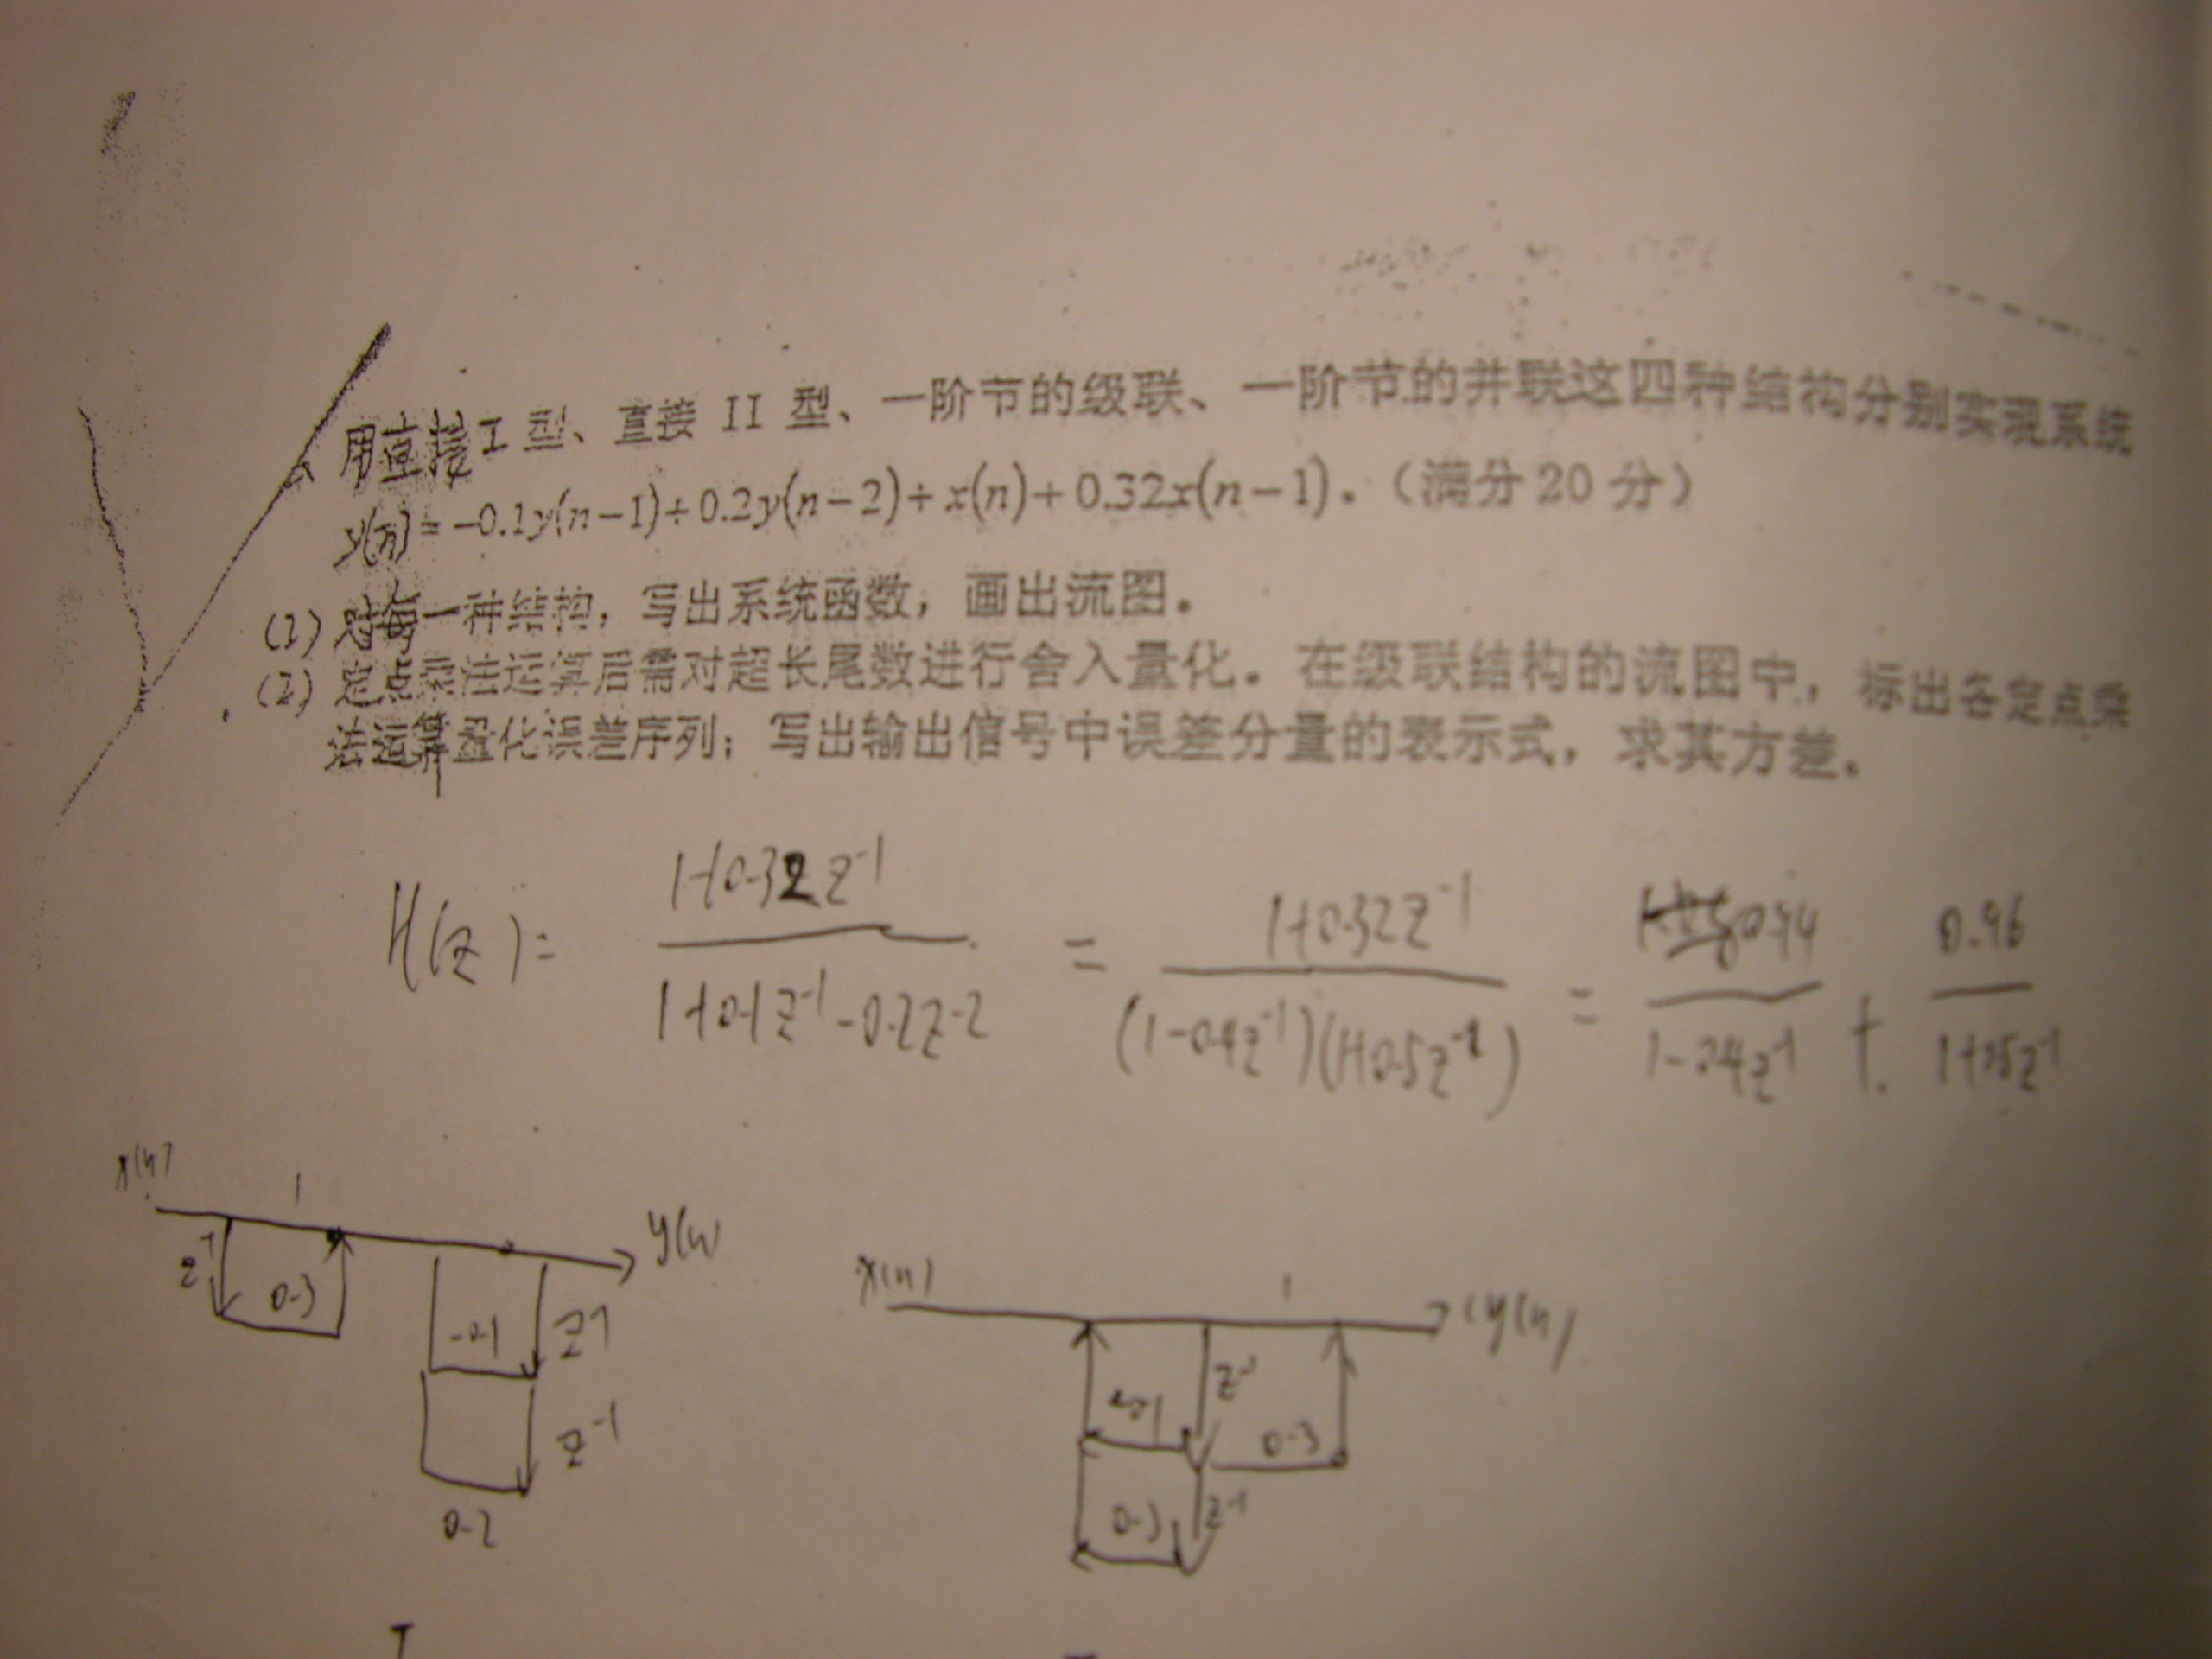 用直接 I 型、直接 II 型、一阶节的级联、一阶节的并联这四种结构分别实现系统
y(n) = -0.1y(n-1)+0.2y(n-2)+x(n)+0.32x(n-1)。(满分 20 分)
(1) 对每一种结构,写出系统函数,画出流图。
(2) 定点乘法运算后需对超长尾数进行舍入量化。在级联结构的流图中,标出各定点乘
法运算量化误差序列;写出输出信号中误差分量的表示式,求其方差。
H(z) = 1+0.32z^-1 / 1+0.1z^-1-0.2z^-2 = 1+0.32z^-1 / (1-0.4z^-1)(1+0.5z^-1) = / 1-0.4z^-1 + 0.96 / 1+0.5z^-1
x(n) 1 y(n)
z^-1 0.3 -0.1 z^-1
z^-1
0.2
x(n) 1 y(n)
z^-1 0.3
z^-1
I